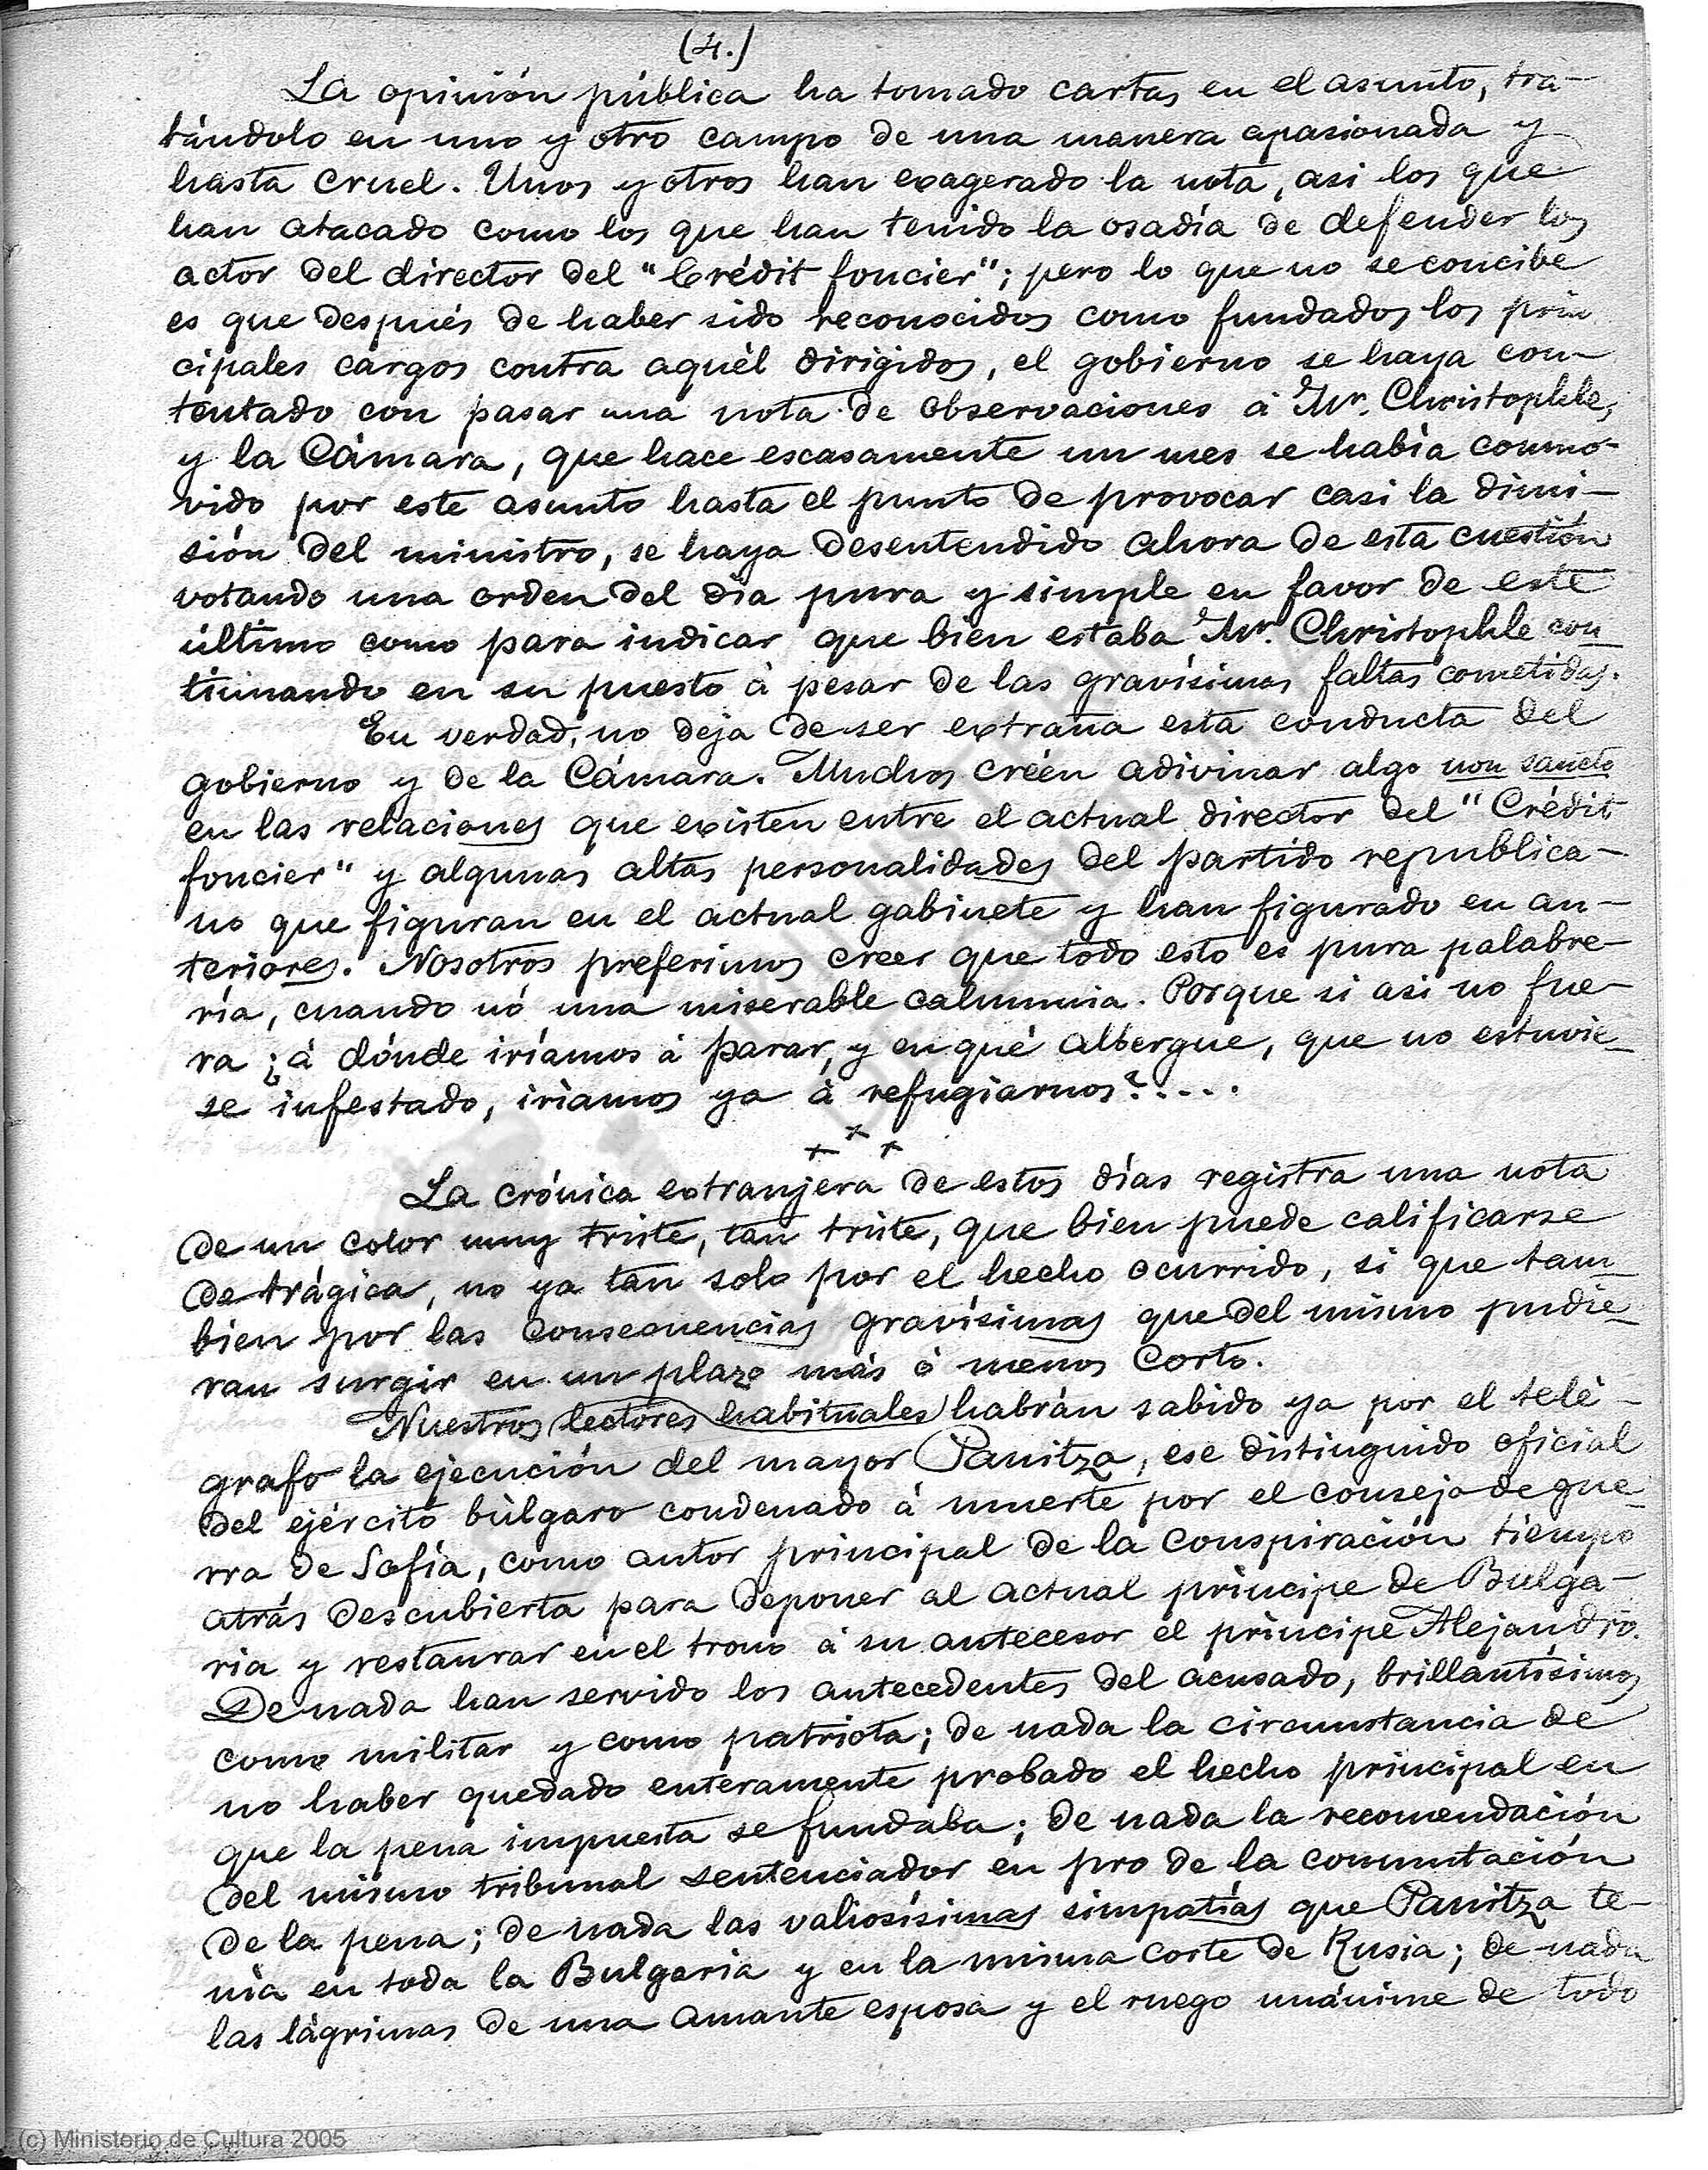 (4.)
La opinión pública ha tomado cartas en el asunto, tra-
tándolo en uno y otro campo de una manera apasionada y
hasta cruel. Unos y otros han exagerado la nota, asi los que
han atacado como los que han tenido la osadía de defender los
actos del director del "Crédit foncier"; pero lo que no se concibe
es que después de haber sido reconocidos como fundados los prin
cipales cargos contra aquél dirigidos, el gobierno se haya con-
tentado con pasar una nota de observaciones á Mr. Christophle,
y la Cámara, que hace escasamente un mes se había conmo-
vido por este asunto hasta el punto de provocar casi la dimi-
sión del ministro, se haya desentendido ahora de esta cuestión
votando una orden del día pura y simple en favor de este
último como para indicar que bien estaba Mr. Christophle con
tinuando en su puesto á pesar de las gravísimas faltas cometidas.
En verdad, no deja de ser extraña esta conducta del
gobierno y de la Cámara. Muchos créen adivinar algo non sancto
en las relaciones que existen entre el actual director del "Crédit
foncier" y algunas altas personalidades del partido republica-
no que figuran en el actual gabinete y han figurado en an-
teriores. Nosotros preferimos creer que todo esto es pura palabre-
ría, cuando nó una miserable calumnia. Porque si asi no fue-
ra ¿á dónde iríamos á parar, y en qué albergue, que no estuvie-
se infestado, iríamos ya á refugiarnos?....
+ + +
La crónica extranjera de estos días registra una nota
de un color muy triste, tan triste, que bien puede calificarse
de trágica, no ya tan solo por el hecho ocurrido, si que tam-
bien por las consecuencias gravísimas que del mismo pudie-
ran surgir en un plazo más ó menos corto.
Nuestros lectores habituales habrán sabido ya por el telé-
grafo la ejecución del mayor Panitza, ese distinguido oficial
del ejército búlgaro condenado á muerte por el consejo de gue-
rra de Sofía, como autor principal de la conspiración tiempo
atrás descubierta para deponer al actual príncipe de Bulga-
ria y restaurar en el trono á su antecesor el príncipe Alejandro.
De nada han servido los antecedentes del acusado, brillantísimos
como militar y como patriota; de nada la circunstancia de
no haber quedado enteramente probado el hecho principal en
que la pena impuesta se fundaba; de nada la recomendación
del mismo tribunal sentenciador en pro de la conmutación
de la pena; de nada las valiosísimas simpatías que Panitza te-
nía en toda la Bulgaria y en la misma corte de Rusia; de nada
las lágrimas de una amante esposa y el ruego unánime de todo
(c) Ministerio de Cultura 2005